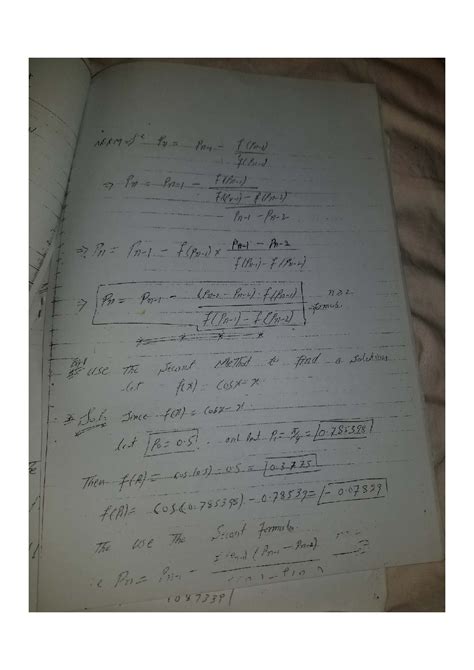 Pn = Pn-1 - f(Pn-1) / f(Pn-1)
⇒ Pn = Pn-1 - f(Pn-1) / (f(Pn-1) - f(Pn-2) / Pn-1 - Pn-2)
⇒ Pn = Pn-1 - f(Pn-1) × Pn-1 - Pn-2 / f(Pn-1) - f(Pn-2)
⇒ Pn = Pn-1 - (Pn-1 - Pn-2) · f(Pn-1) / f(Pn-1) - f(Pn-2) n ≥ 2
formula
use The Secant Method to find a solution
let f(x) = cosx - x
Sol: Since f(x) = cosx - x
let P0 = 0.5 and let P1 = π/4 = 0.785398
Then f(P0) = cos(0.5) - 0.5 =
f(P1) = cos(0.785398) - 0.78539 = - 0.07829
The use The Secant formula
Pn = Pn-1 - (Pn-1 - Pn-2)
087339